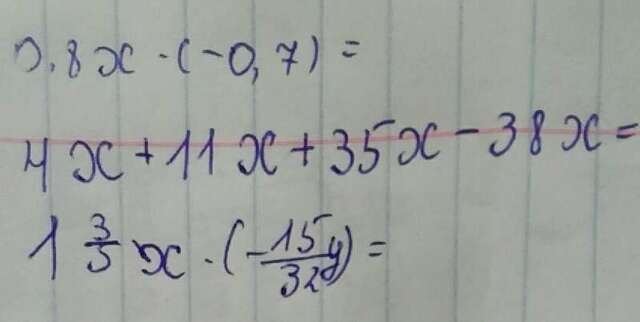 0,8x · (-0,7) =
4x + 11x + 35x - 38x =
1 3/5 x · (-15/32 y) =